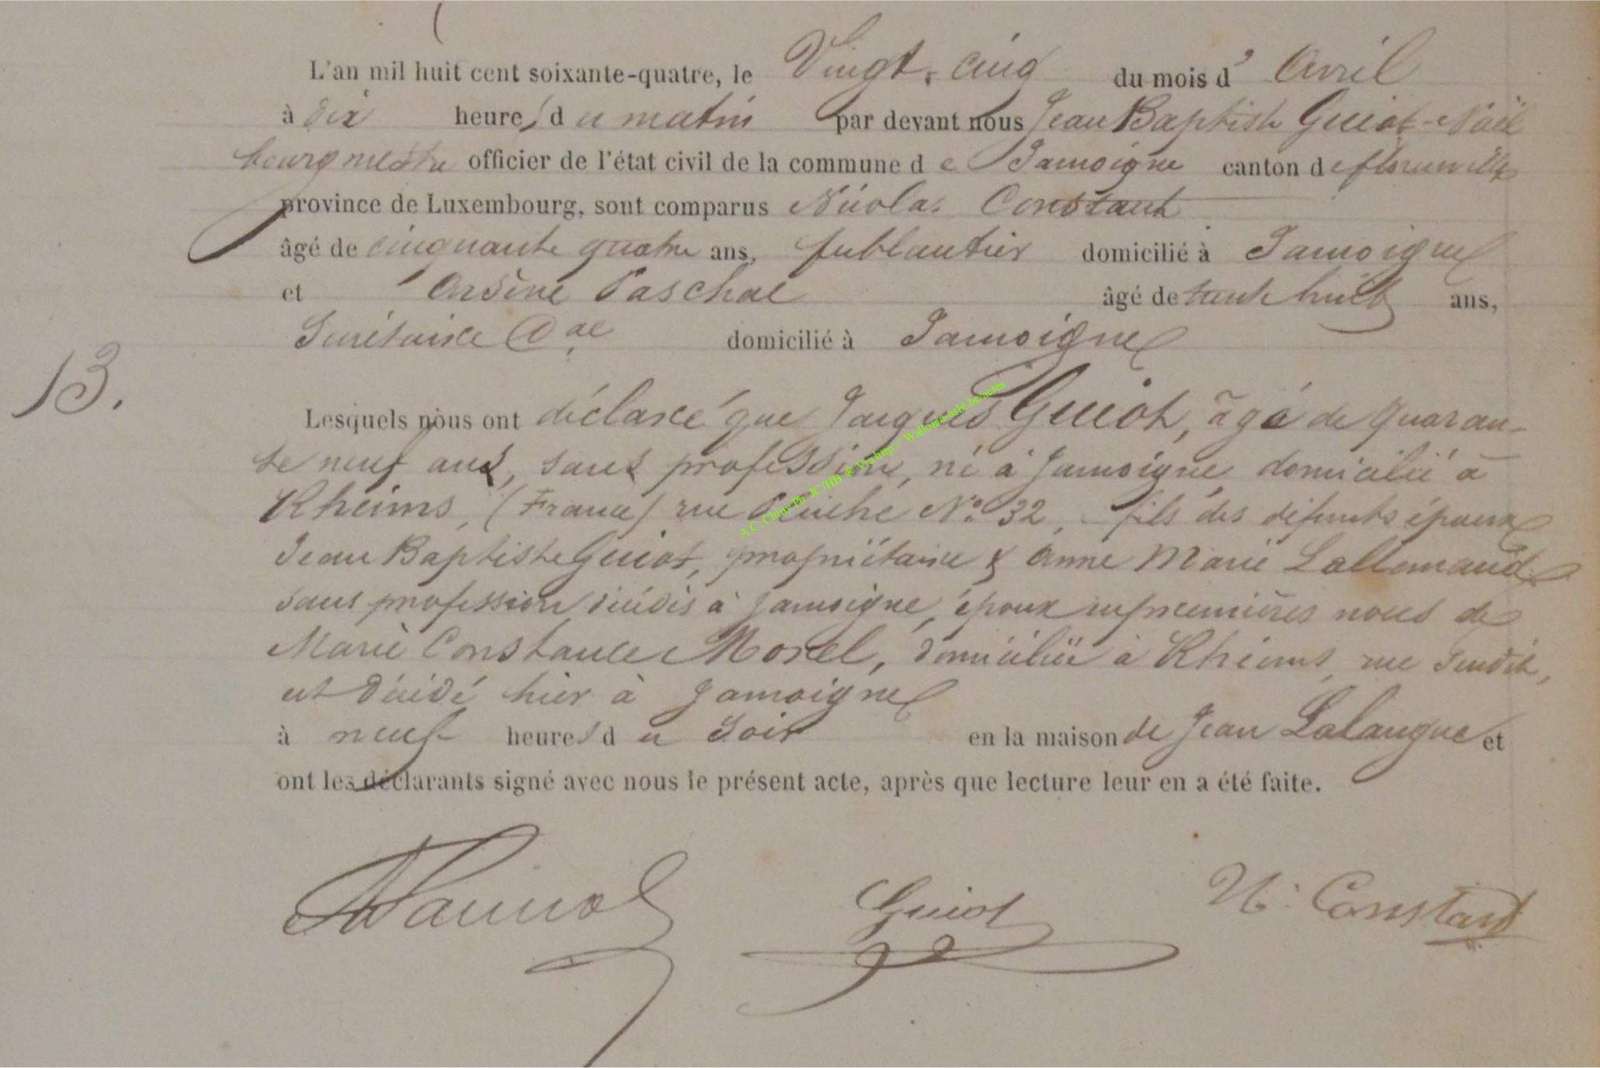 L'an mil huit cent soixante-quatre, le Vingt-cinq du mois d' Avril
à dix heures du matin par devant nous Jean Baptiste Guiot-Noël
bourgmestre officier de l'état civil de la commune de Jamoigne canton de florenville
province de Luxembourg, sont comparus Nicolas Constant
âgé de cinquante quatre ans, ferblantier domicilié à Jamoigne
et Arsène Paschal âgé de trente huit ans,
Secrétaire Cal domicilié à Jamoigne
13.
Lesquels nous ont déclaré que Jacques Guiot, âgé de quaran-
te neuf ans, sans profession, né à Jamoigne domicilié à
Rheims, (France) rue N° 32, fils des défunts époux
Jean Baptiste Guiot, propriétaire & Anne Marie Lallemand
sans profession décédés à Jamoigne, époux en premières noces de
Marie Constance Morel, domiciliée à Rheims, rue susdite,
est décédé hier à Jamoigne
à neuf heures du soir en la maison de Jean Lalangue et
ont les déclarants signé avec nous le présent acte, après que lecture leur en a été faite.
Guiot N. Constant